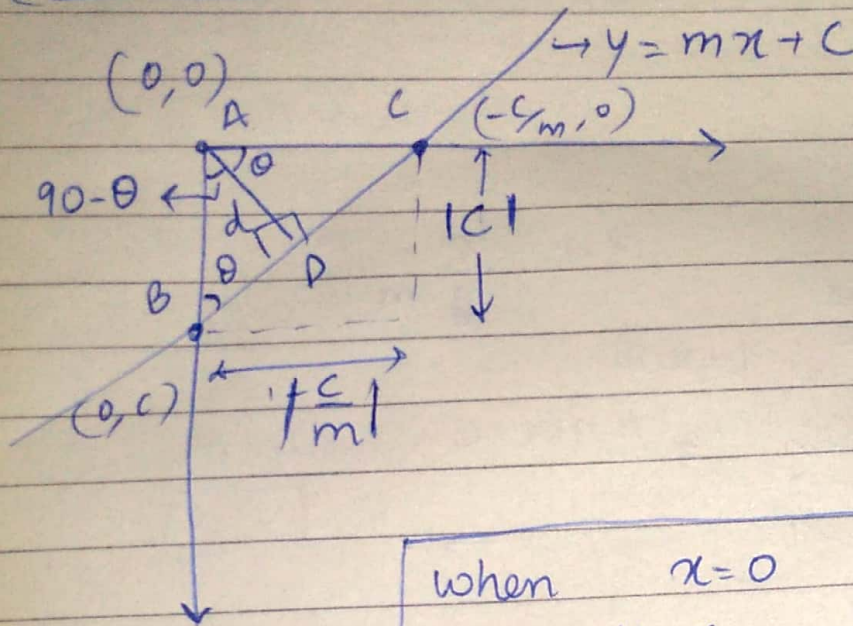 → y = mx + c
(0,0)
A
C
(-c/m, 0)
θ
90-θ
d
|C|
θ
D
B
(0,C)
|c/m|
when x=0